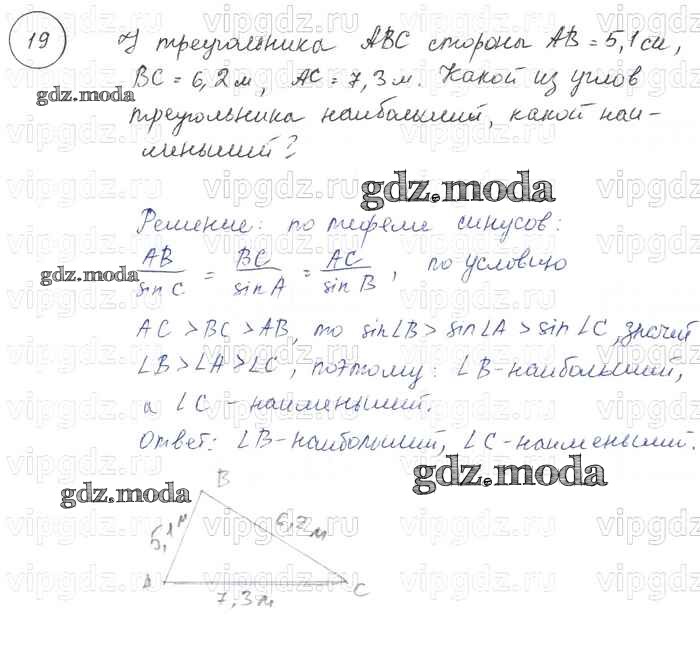 19 У треугольника ABC стороны AB = 5,1 см,
BC = 6,2 м, AC = 7,3 м. Какой из углов
gdz.moda
треугольника наибольший, какой наи-
меньший?
gdz.moda
Решение: по теореме синусов:
AB/sin C = BC/sin A = AC/sin B, по условию
gdz.moda
AC > BC > AB, то sin∠B > sin∠A > sin∠C, значит
∠B > ∠A > ∠C, поэтому: ∠B - наибольший,
а ∠C - наименьший.
Ответ: ∠B - наибольший, ∠C - наименьший.
gdz.moda
gdz.moda
B
5,1 м 6,2 м
A C
7,3 м
vipgdz.ru